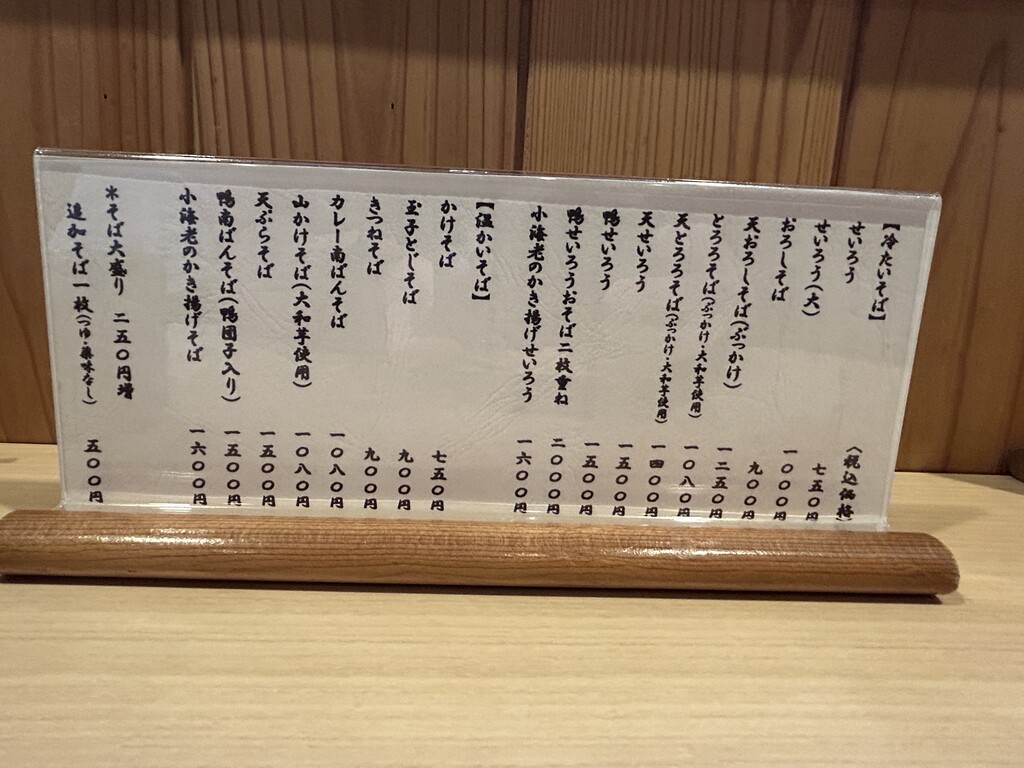 【冷たいそば】 〈税込価格〉
せいろう 七五〇円
せいろう(大) 一〇〇〇円
おろしそば 九〇〇円
天おろしそば(ぶっかけ) 一二五〇円
とろろそば(ぶっかけ・大和芋使用) 一〇八〇円
天とろろそば(ぶっかけ・大和芋使用) 一四〇〇円
天せいろう 一五〇〇円
鴨せいろう 一五〇〇円
鴨せいろうおそば二枚重ね 二〇〇〇円
小海老のかき揚げせいろう 一六〇〇円
【温かいそば】
かけそば 七五〇円
玉子とじそば 九〇〇円
きつねそば 九〇〇円
カレー南ばんそば 一〇八〇円
山かけそば(大和芋使用) 一〇八〇円
天ぷらそば 一五〇〇円
鴨南ばんそば(鴨団子入り) 一五〇〇円
小海老のかき揚げそば 一六〇〇円
*そば大盛り 二五〇円増
追加そば一枚(つゆ・薬味なし) 五〇〇円